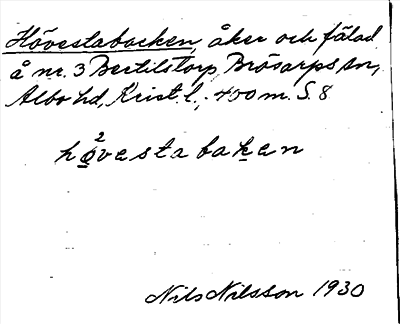 Hövestabacken, åker och fälad
å nr. 3 Bertilstorp, Brösarps sn,
Albo hd, Krist. l., 400 m. S. 8.
2
høvestabaken
Nils Nilsson 1930